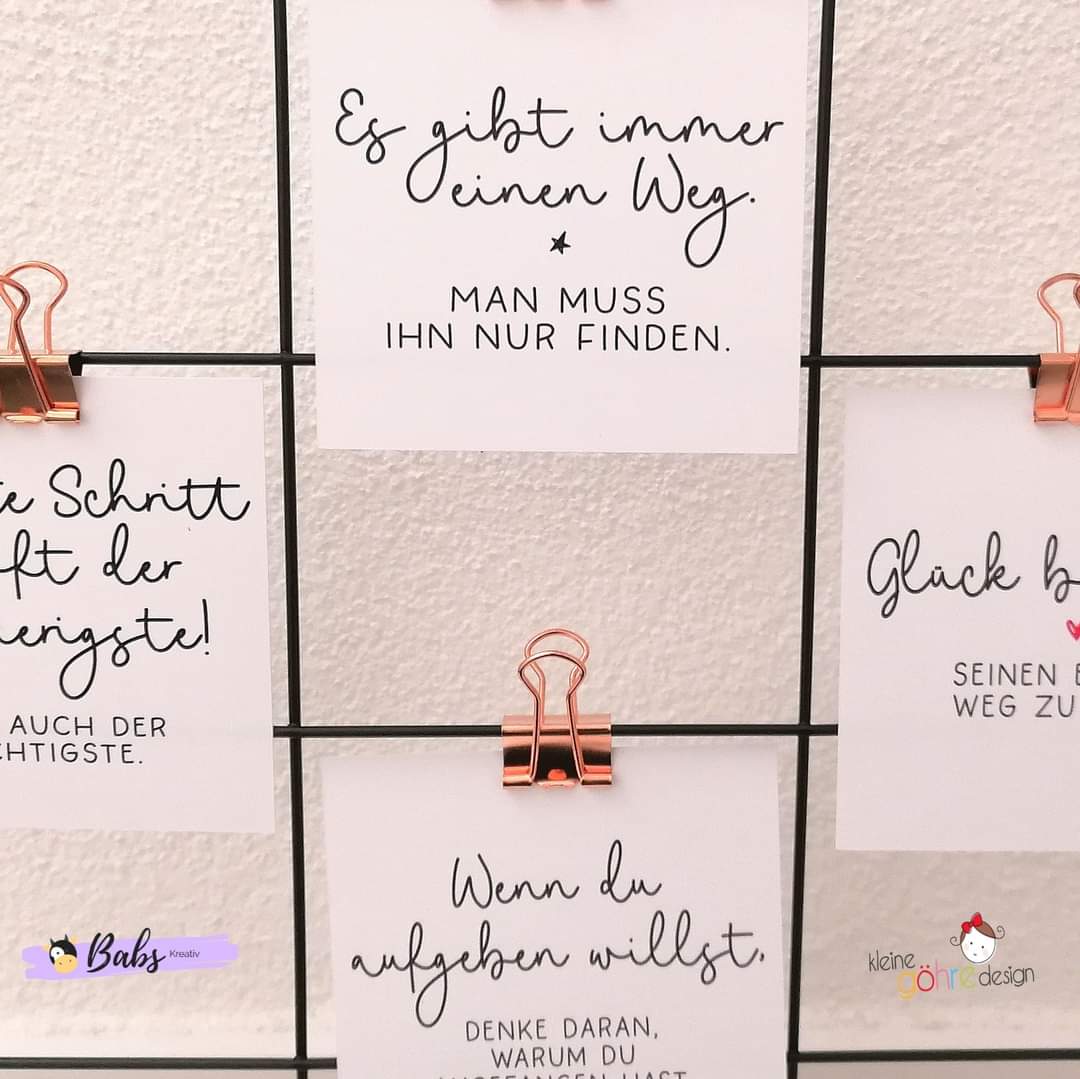 Es gibt immer
einen Weg.
MAN MUSS
IHN NUR FINDEN.
Schritt
der
AUCH DER
Glück
SEINEN
WEG ZU
Wenn du
aufgeben willst,
DENKE DARAN,
WARUM DU
Babs Kreativ
kleine
göhre design